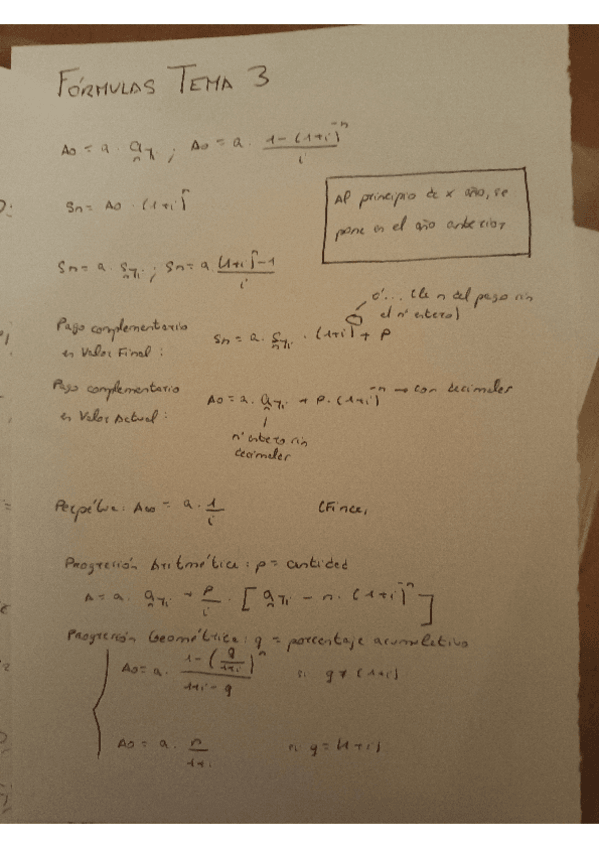 FÓRMULAS TEMA 3
A0 = a · a n¬i ; A0 = a · 1-(1+i)^-n / i
Sn = A0 · (1+i)^n
Al principio de x año, se
pone en el año anterior
Sn = a · S n¬i ; Sn = a (1+i)^n - 1 / i
el nº entero)
Pago complementario
en Valor Final :
Sn = a · S n¬i · (1+i) + P
Pago complementario
en Valor Actual :
A0 = a · a n¬i + P · (1+i)^-n → con decimales
nº entero sin
decimales
Perpétua : A∞ = a · 1/i
Progresión Aritmética : p = cantidad
A = a · a n¬i + p/i · [ a n¬i - n · (1+i)^-n ]
Progresión Geométrica : q = porcentaje acumulativo
A0 = a · 1-(q/1+i)^n / 1+i-q si q ≠ (1+i)
A0 = a · n / 1+i si q = (1+i)